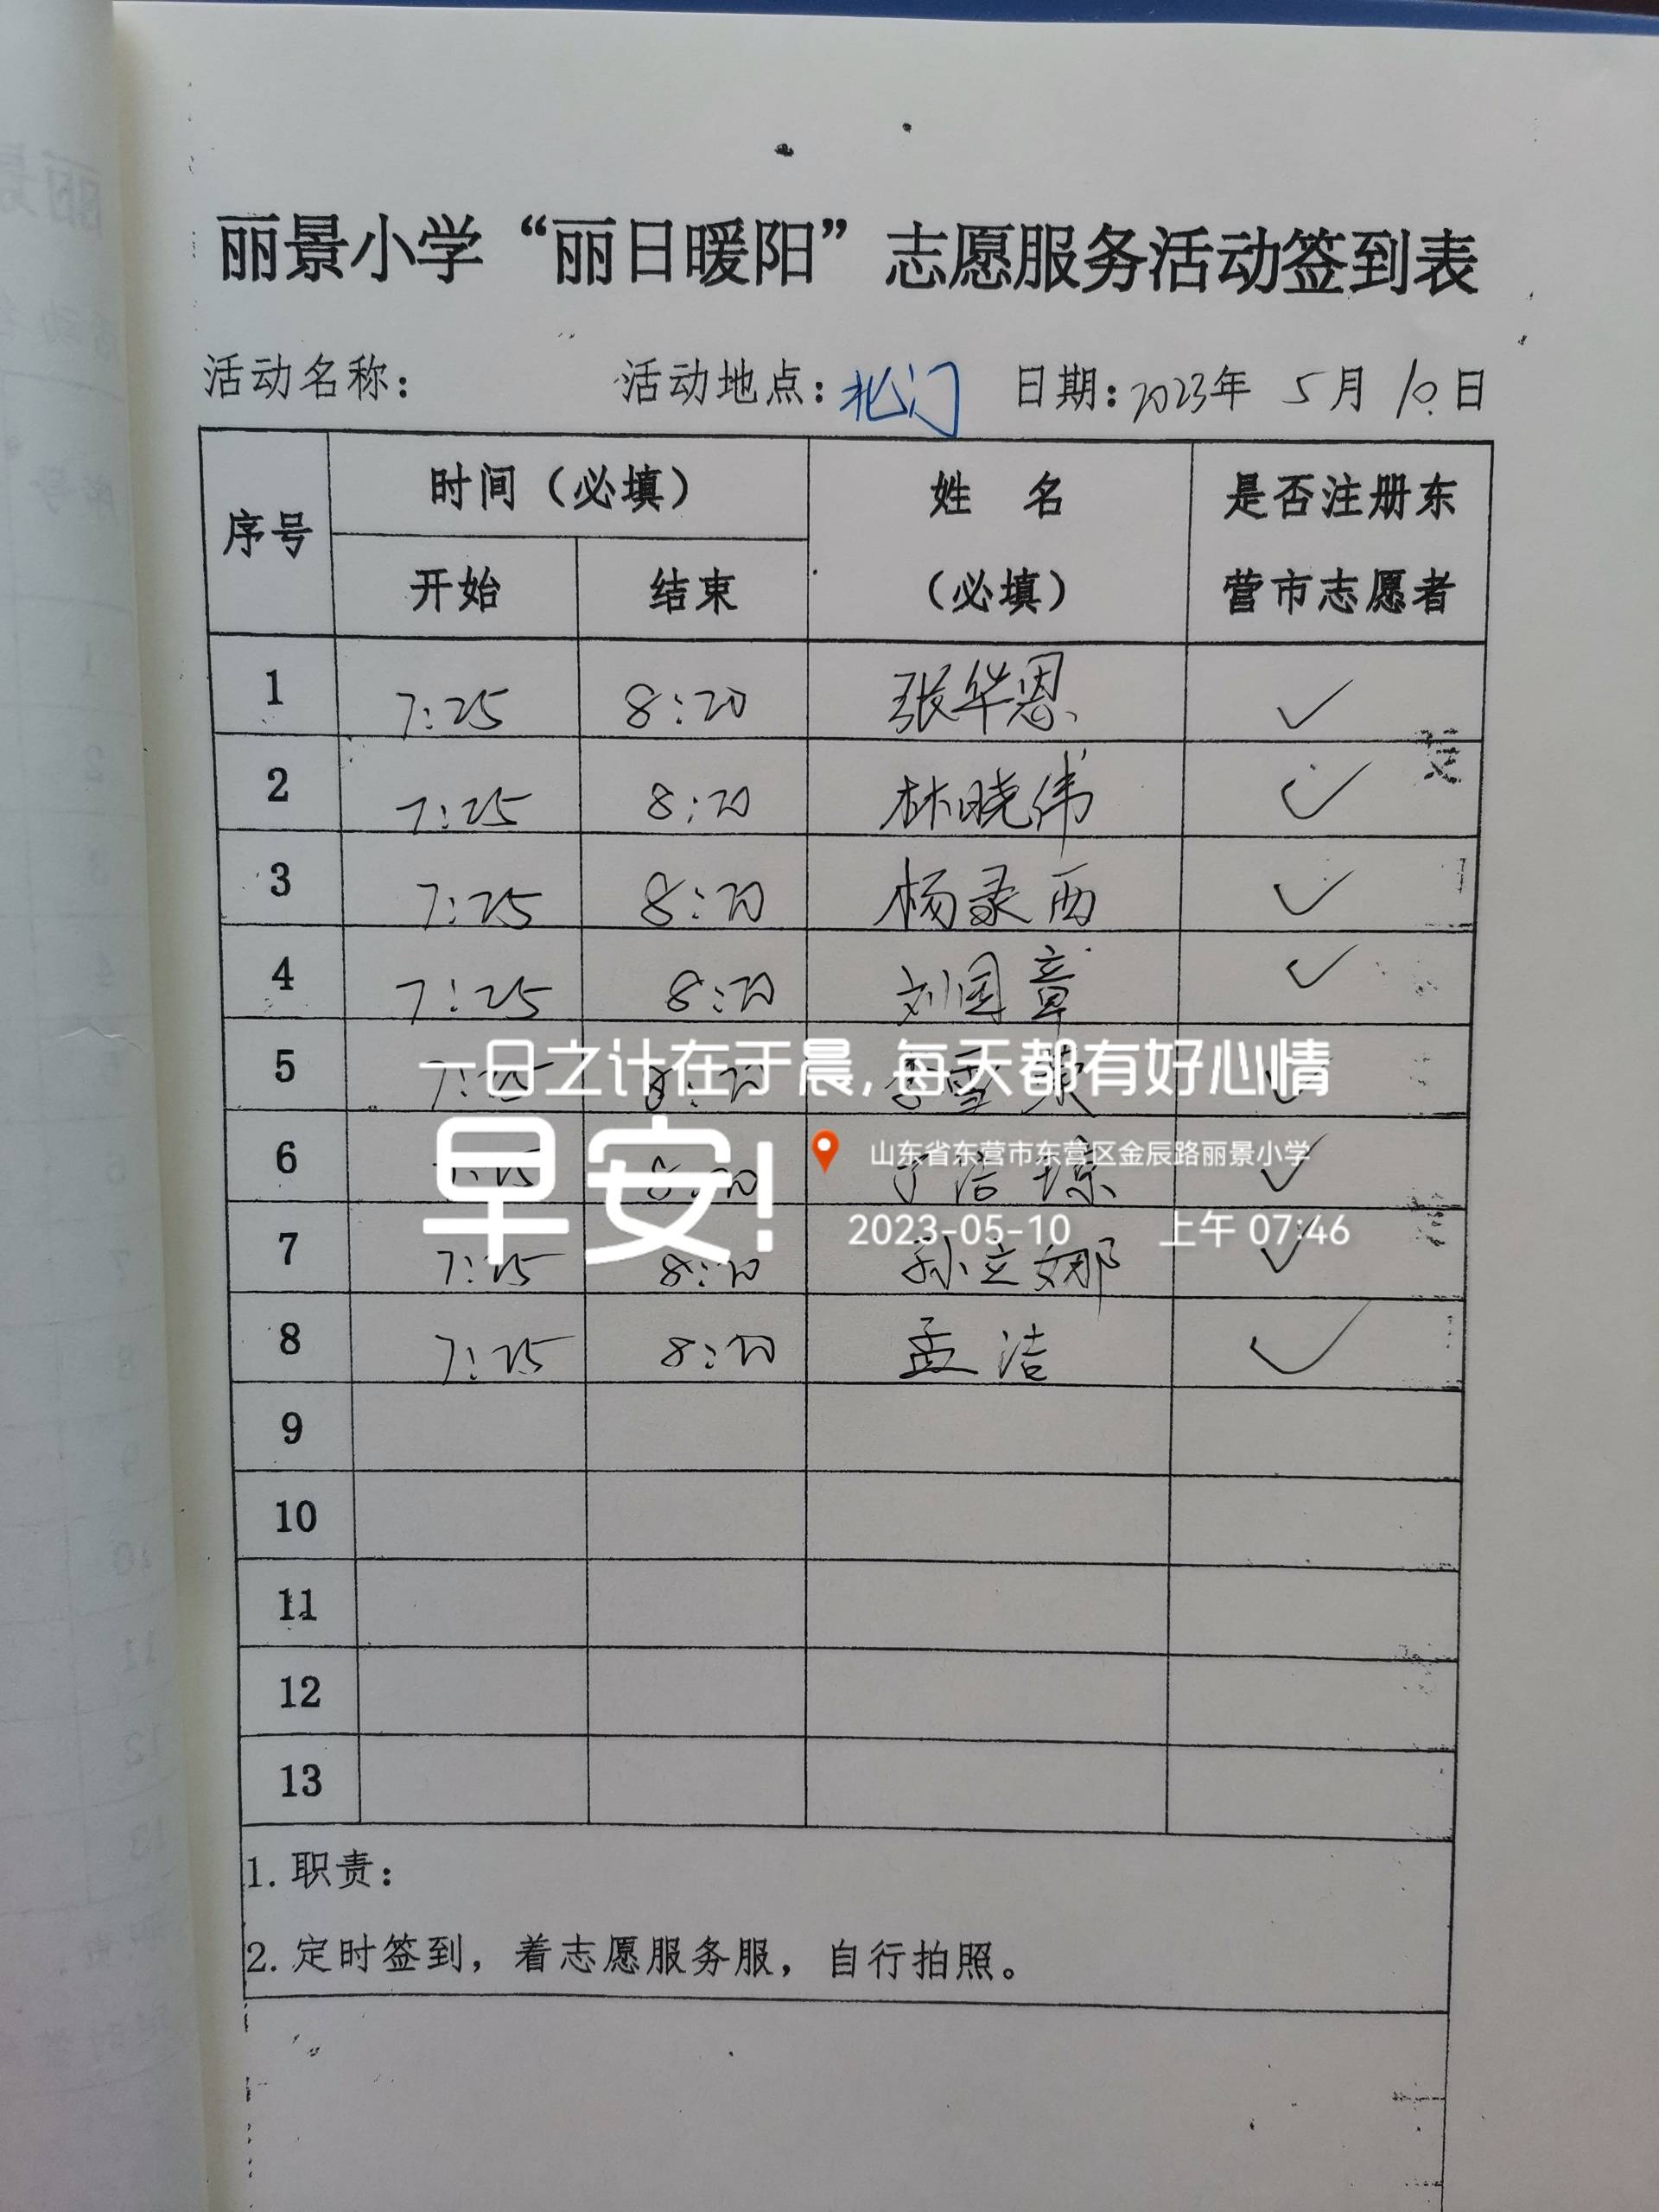 丽景小学“丽日暖阳”志愿服务活动签到表
活动名称： 活动地点：北门 日期：2023年 5月 10日
序号 时间（必填） 姓 名（必填） 是否注册东营市志愿者
开始 结束
1 7:25 8:20 张华恩 ✓
2 7:25 8:20 林晓伟 ✓
3 7:25 8:20 杨录西 ✓
4 7:25 8:20 刘国章 ✓
一日之计在于晨，每天都有好心情
5 7:25 8:20 ✓
早安！
山东省东营市东营区金辰路丽景小学
6 7:25 8:20 ✓
2023-05-10 上午 07:46
7 7:25 8:20 孙立娜 ✓
8 7:25 8:20 孟洁 ✓
9
10
11
12
13
1. 职责：
2. 定时签到，着志愿服务服，自行拍照。